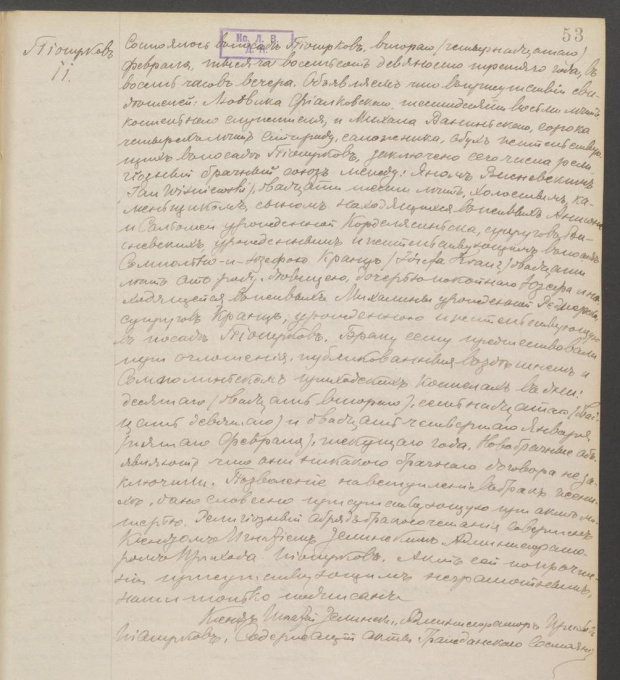 53
Піотрковъ
11.
Состоялось въ посадѣ Піотрковъ, втораго (четырнадцатаго)
февраля, тысяча восемьсотъ девяносто третьяго года, въ
восемь часовъ вечера. Объявляемъ что въ присутствіи сви-
дѣтелей: Людвика Фіалковскаго, шестидесяти восьми лѣтъ
костельнаго служителя, и Михала сорока
четырехъ лѣтъ отъ роду, сапожника, обухъ жительствую-
щихъ въ посадѣ Піотрковъ, заключенъ сего числа рели-
гіозный брачный союзъ между: Яномъ Висневскимъ
Jan Wiśniewski), двадцати шести лѣтъ, холостымъ, ка-
меньщикомъ, сыномъ находящихся въ живыхъ Антона
и Саломеи урожденной супруговъ Вис-
невскихъ, урожденнымъ и жительствующимъ въ посадѣ
Сомпольно и Юзефою Кранцъ (Józefa Kranz) двадцати
лѣтъ отъ роду, дѣвицею, дочерью покойнаго и на-
ходящейся въ живыхъ Михалины урожденной
супруговъ Кранцъ, урожденною и жительствующею
въ посадѣ Піотрковъ. Браку сему предшествовали
три оглашенія, публикованныя въ здѣшнемъ и
Сомполинскомъ приходскихъ Костелахъ въ дни:
десятаго (двадцать втораго), семнадцатаго (двад-
цать девятаго) и двадцать четвертаго Января
(пятаго Февраля), текущаго года. Новобрачные объ-
являютъ что они никакого брачнаго договора не за-
ключили. Позволеніе на вступленіе въ бракъ
дано словесно присутствующею при актѣ ма-
терью. Религіозный обрядъ бракосочетанія совершенъ
Ксендзомъ Игнатіемъ Зелинскимъ Администрато-
ромъ Прихода Піотрковъ. Актъ сей по прочте-
ніи присутствующимъ неграмотнымъ,
нами только подписанъ.
Ксендзъ Игнатій Зелинскій, Администраторъ Прихода
Піотрковъ, Содержащій акты Гражданскаго Состоянія